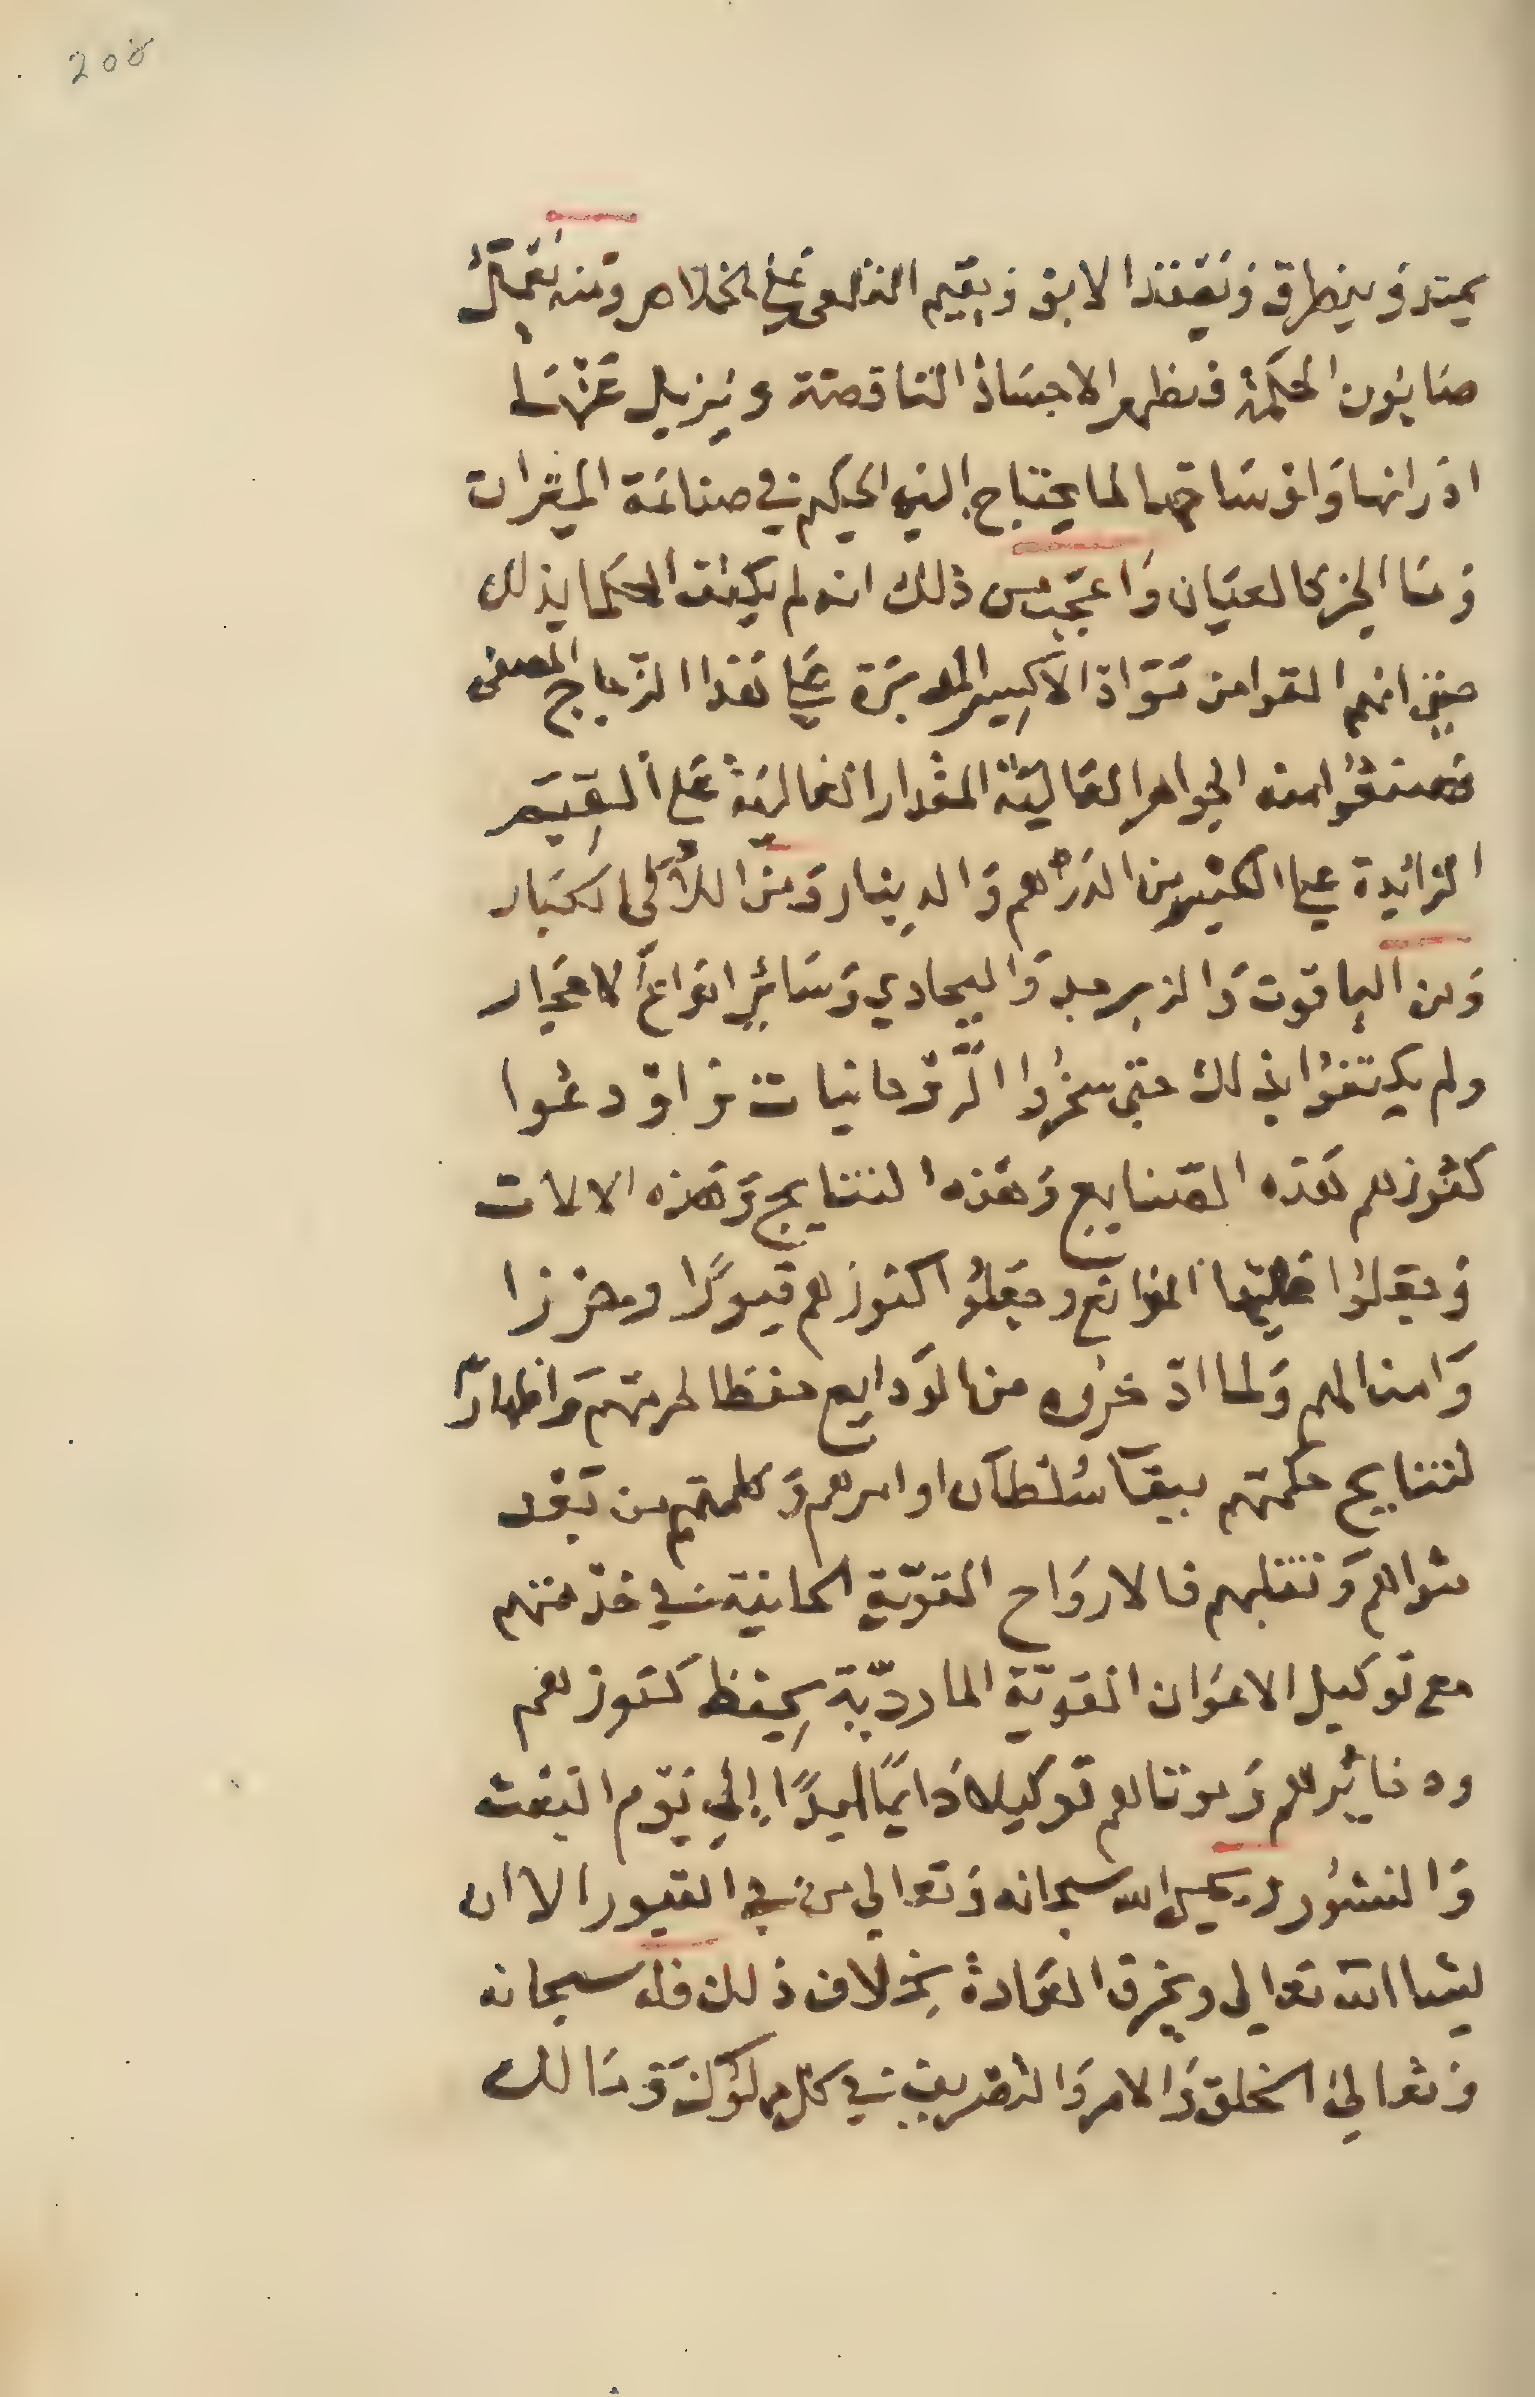 208
يمتد وينطرق ويعقد الابق ويقيم القلعي على الخلاص ومنه يعمل
صابون الحكمة فيطهر الاجساد الناقصة ويزيل عنها
ادرانها واوساخها لما يحتاج اليه الحكيم في صناعة الميزات
وما الخبر كالعيان واعجب من ذلك انه لم يكتف الحكما بذلك
حتى انهم القوا من مواد الاكسير المدبرة على هذا الزجاج المصفى
فصنعوا منه الجواهر العالية المقدار الغالية على القيم
الزائدة على الكثير من الدرهم والدينار ومن اللآلى الكبار
ومن الياقوت والزبرجد والبجادي وسائر انواع الاحجار
ولم يكتفوا بذلك حتى سخروا الروحانيات واودعوا
كنوزهم هذه الصنايع وهذه النتايج وهذه الالات
وجعلوا عليها الموانع وجعلوا كنوزهم قبورا وحرزا
وامنا لهم ولما ادخروه من الودايع حفظا لحرمتهم واظهارا
لنتايج حكمتهم ببقآ سلطان اوامرهم وكلمتهم من بعد
مثواهم ونقلهم فالارواح القوية الحانية في خدمتهم
مع توكيل الاعوان القوية الماردية بحفظ كنوزهم
ودخائرهم وموتاهم توكيلا دايما ابدا الي يوم البعث
والنشور ويحيي الله سبحانه وتعالي من في القبور الا ان
يشا الله تعالي ويخرق العادة بخلاف ذلك فله سبحانه
وتعالي الخلق والامر والتصريف في كل مملوك ومالك